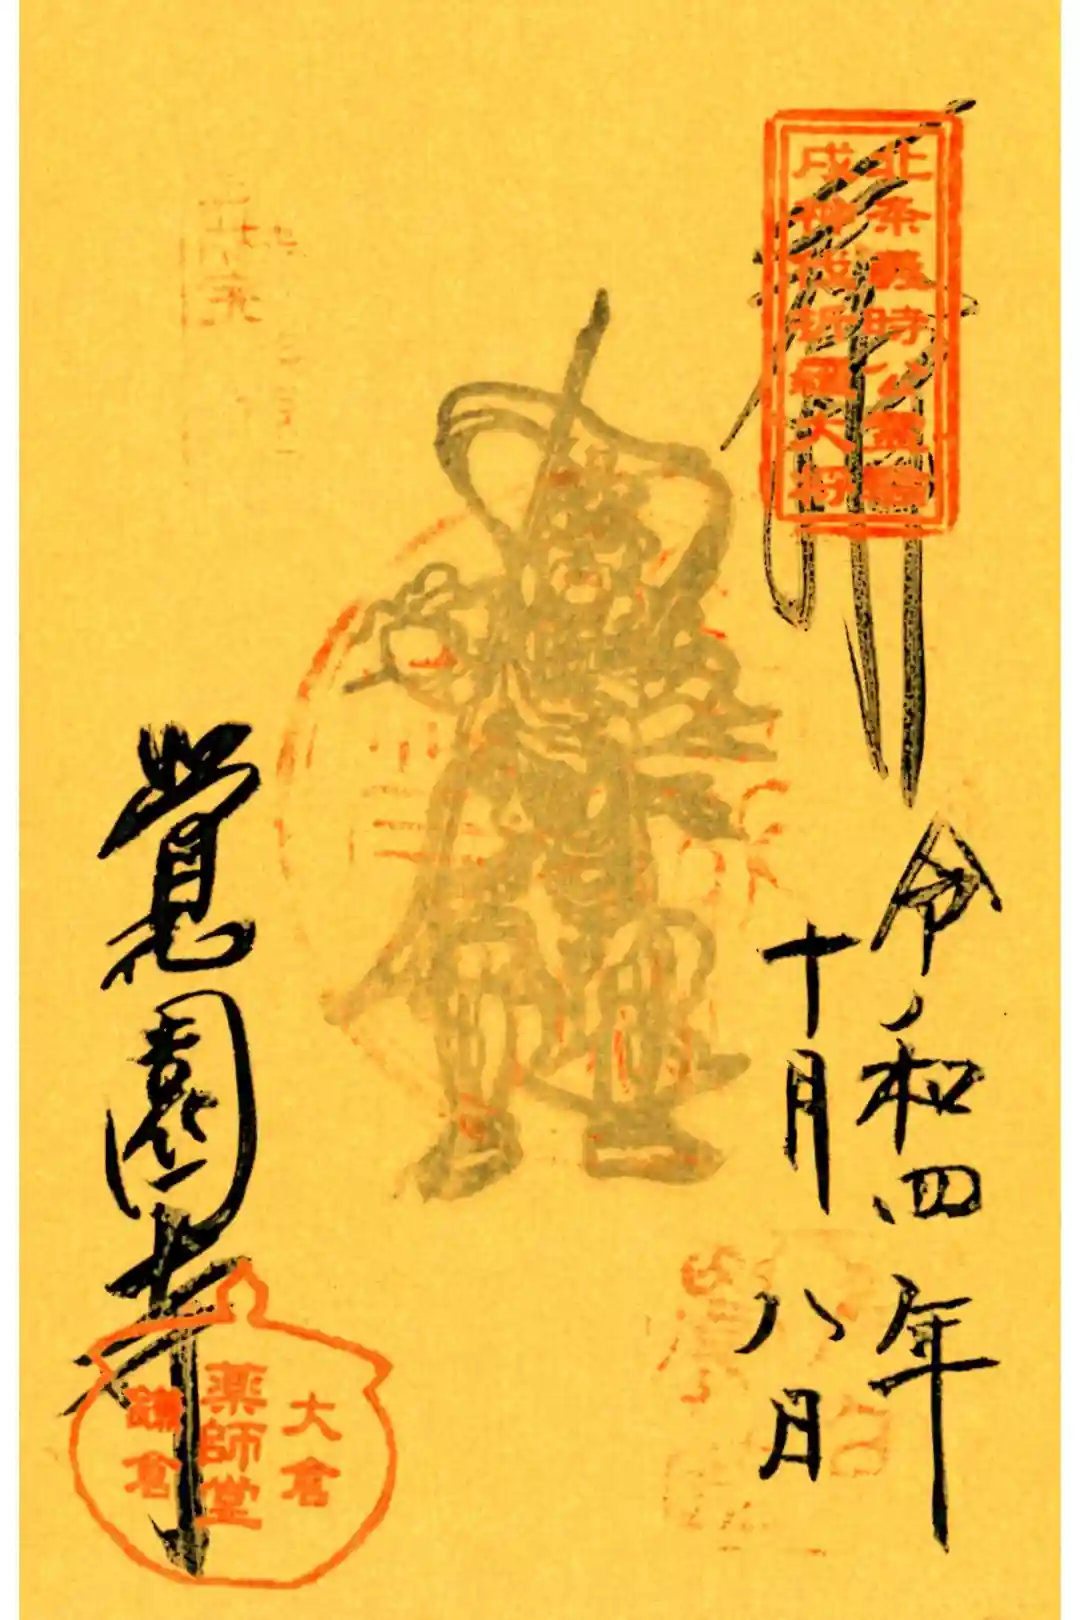 奉拝
北条義時公霊験
戌神伐折羅大将
令和四年
十月八日
覚園寺
大倉
薬師堂
鎌倉